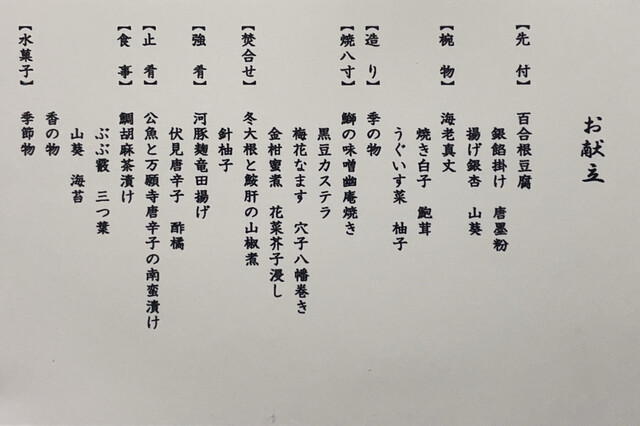 お献立
【先付】 百合根豆腐
銀餡掛け 唐墨粉
揚げ銀杏 山葵
【椀物】 海老真丈
焼き白子 鮑茸
うぐいす菜 柚子
【造り】 季の物
【焼八寸】 鰤の味噌幽庵焼き
黒豆カステラ
梅花なます 穴子八幡巻き
金柑蜜煮 花菜芥子浸し
【焚合せ】 冬大根と鮟肝の山椒煮
針柚子
【強肴】 河豚麹竜田揚げ
伏見唐辛子 酢橘
【止肴】 公魚と万願寺唐辛子の南蛮漬け
【食事】 鯛胡麻茶漬け
ぶぶ霰 三つ葉
山葵 海苔
香の物
【水菓子】 季節物